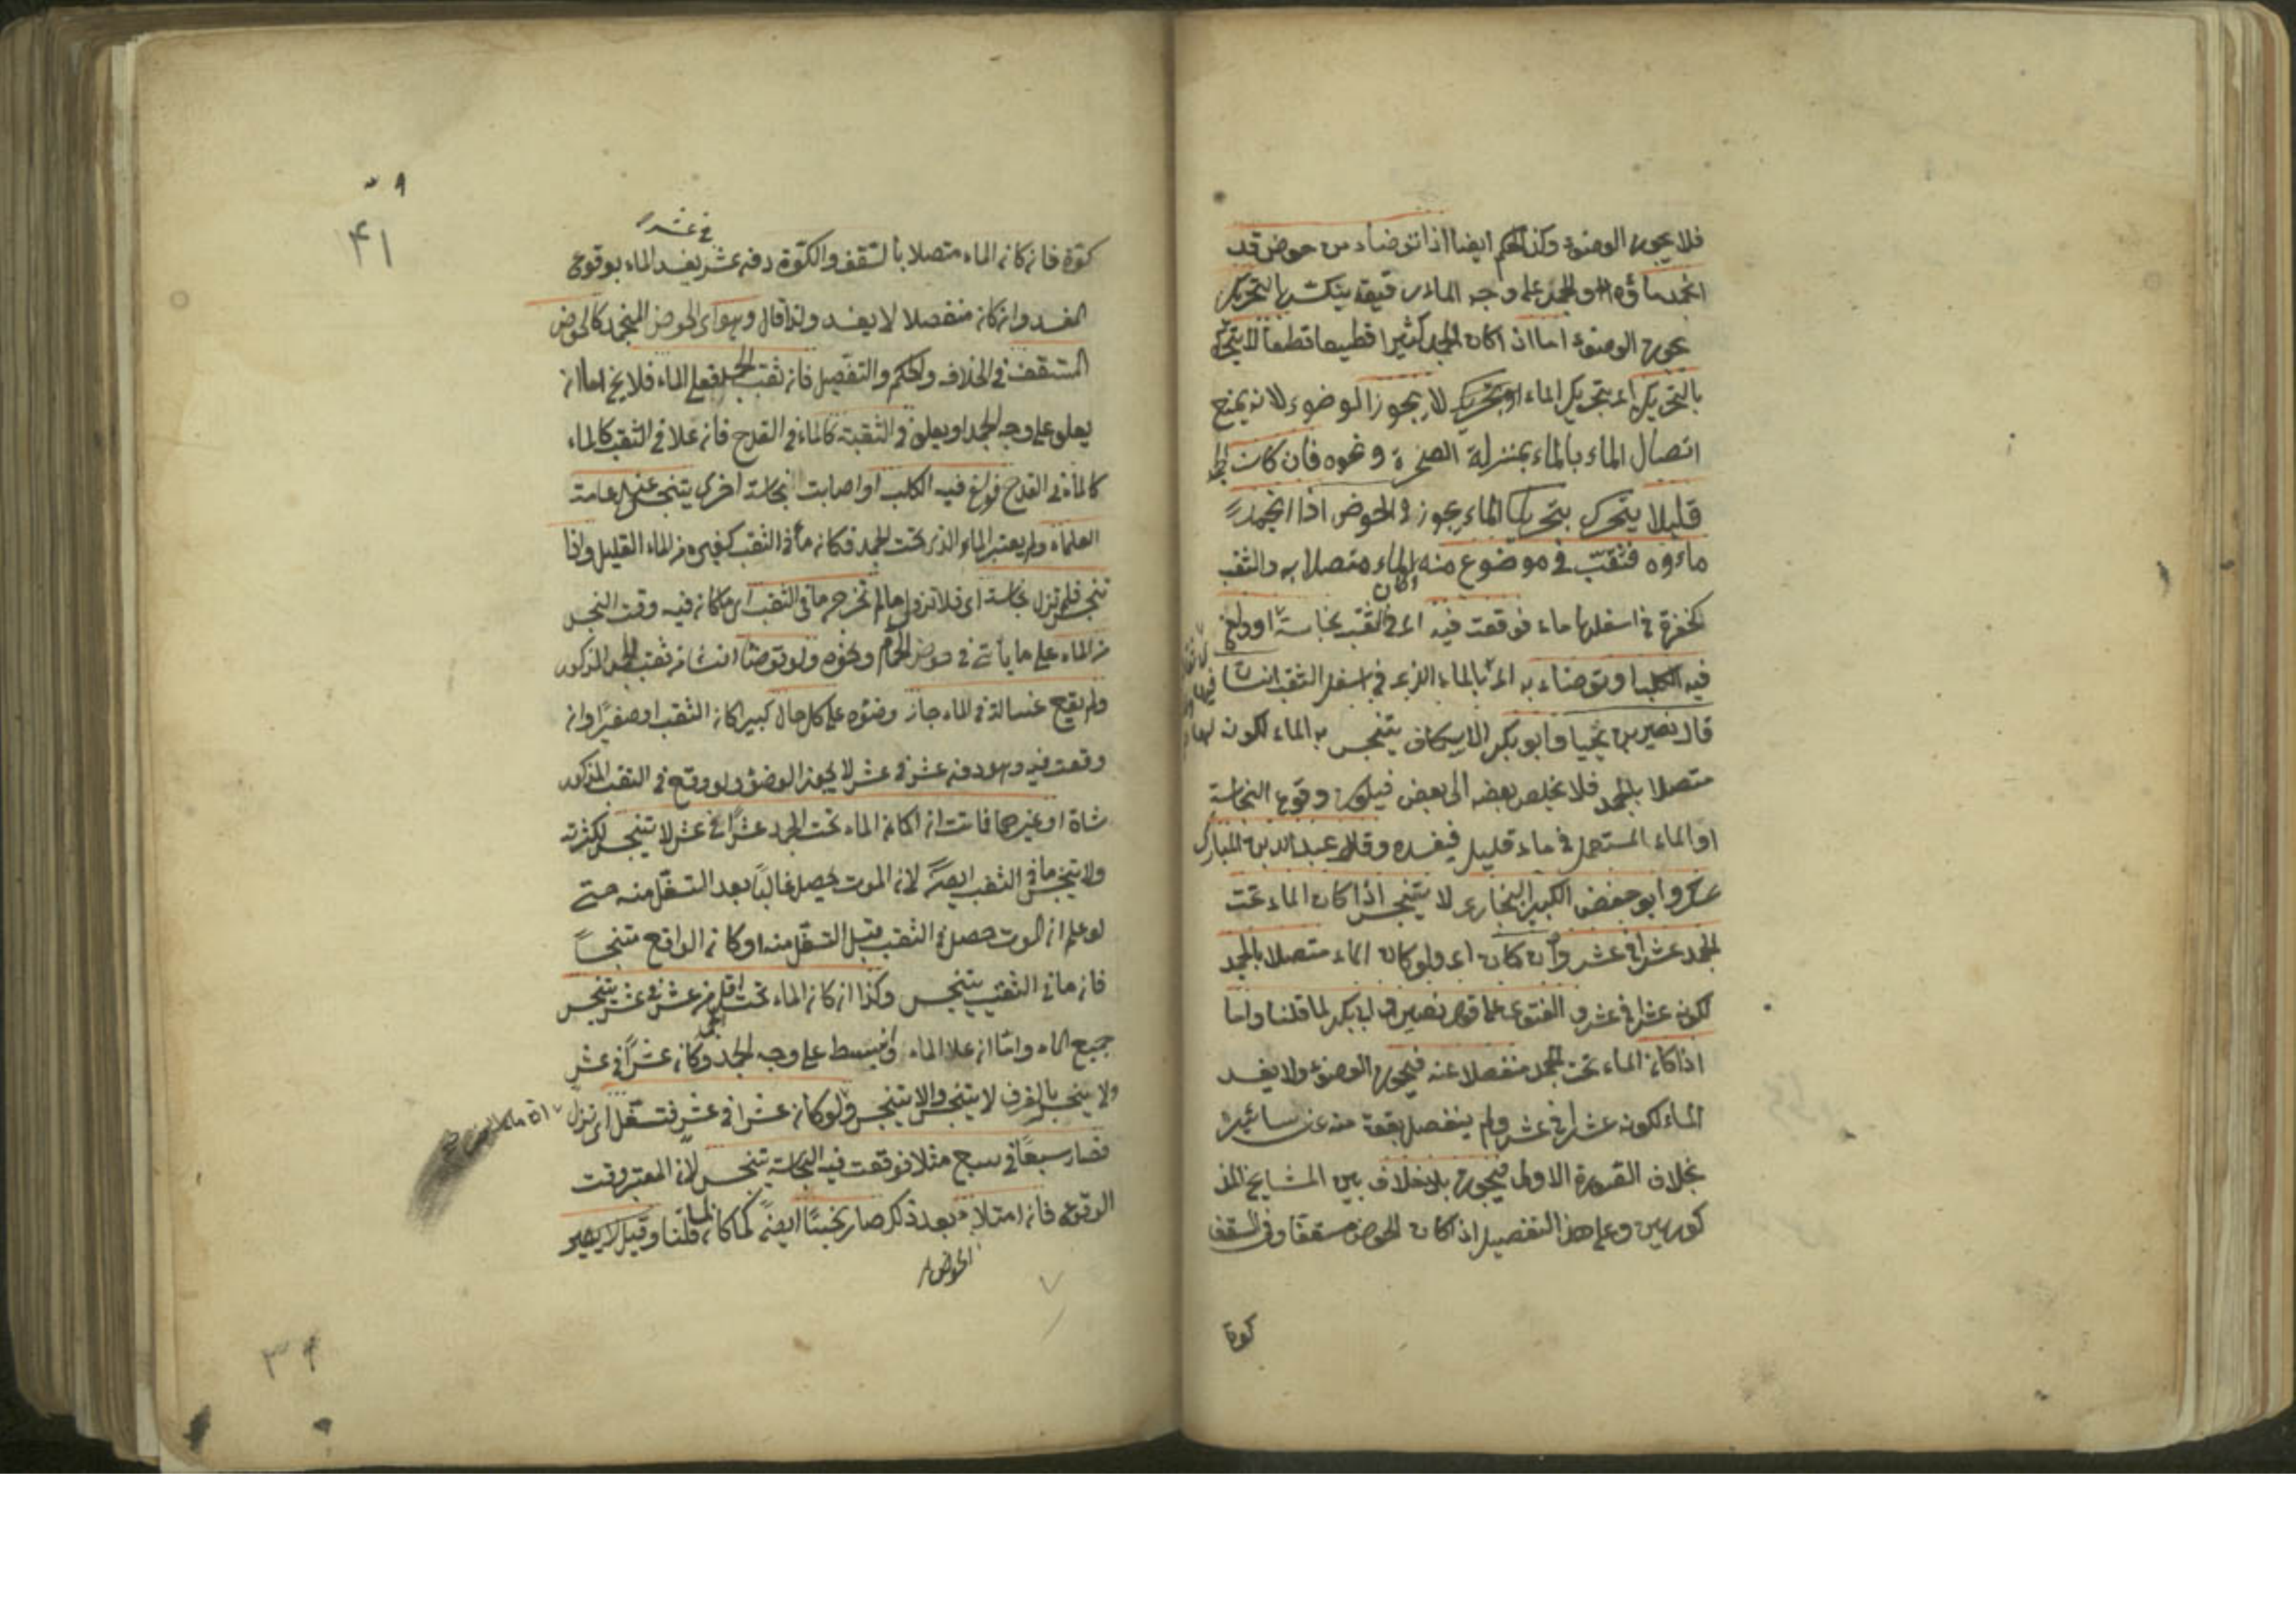 فلا يجوز الوضوء وكذا الحكم ايضا اذا توضاء من حوض قد
انجمد ماؤه والجمد على وجه الماء رقيقة ينكسر بالتحريك
يجوز الوضوء اما اذا كان الجمد كثيرا قطعا قطعا لا يتحرك
بالتحريك اى بتحريك الماء لا يجوز الوضوء لانه يمنع
اتصال الماء بالماء بمنزلة الصخرة ونحوه فان كان الجمد
قليلا يتحرك بتحريك الماء يجوز فى الحوض اذا انجمد
ماءوه فنقب فى موضوع منه اكان الماء متصلا به والثقب
كحفرة فى اسفلها ماء فوقعت فيه اى فى الثقب نجاسة او ولغ
فيه الكلب او توضاء به اى بالماء الذى فى اسفل الثقب انسان
قال نصير بن يحيا وابو بكر الاسكاف يتنجس به الماء لكونه
متصلا بالجمد فلا يخلص بعضه الى بعض فيكون وقوع النجاسة
او الماء المستعمل فى ماء قليل فيفسده وقال عبد الله بن المبارك
وابو حفض الكبير البخارى لا يتنجس اذا كان الماء تحت
الجمد عشرا فى عشر وان كان اى ولو كان الماء متصلا بالجمد
لكونه عشرا فى عشر والفتوى على قول نصير وابى بكر لما قلنا واما
اذا كان الماء تحت الجمد منفصلا عنه فيجوز الوضوء ولا يفسد
الماء لكونه عشرا فى عشر ولم ينفصل بقعة منه عن سائره
بخلاف الصورة الاولى فيجوز بلا خلاف بين المشايخ المذ
كورين وعلى هذا التفصيل اذا كان الحوض مسقفا وفى السقف
كوة
٤١
فى عشر
كوة فان كان الماء متصلا بالسقف والكوة دون عشر يفسد الماء بوقوع
المفسد وان كان منفصلا لا يفسد ولذا قال وهو اى الحوض المنجمد كالحوض
المسقف فى الخلاف والحكم والتفصيل فان ثقب الجمد فعلى الماء فلا يخ اما ان
يعلو على وجه الجمد او يعلو فى الثقبة كالماء فى القدح فان علا فى الثقب كالماء
كالماء فى القدح فولغ فيه الكلب او اصابت نجاسة اخرى يتنجس عند عامة
العلماء ولم يعتبر الماء الذى تحت الجمد فكان ماء الثقب كغيره من الماء القليل واذا
تنجس فلم تزل نجاسة اى فلا تزول مالم تخرج ما فى الثقب اى ما كان فيه وقت النجس
من الماء على ما يأتى فى حوض الحمام ونحوه ولو توضأ انسان من ثقب الجمد المذكور
ولم يقع غسالة فى الماء جاز وضوه على كل حال كبيرا كان الثقب او صغيرا وان
وقعت فيه وهو دون عشر فى عشر لا يجوز الوضوء ولو وقع فى الثقب المذكور
شاة او غيرها فماتت ان اكان الماء تحت الجمد عشرا فى عشر لا تينجس لكثرته
ولا يتنجس ما فى الثقب ايضا لان الموت يحصل غالبا بعد التسفل منه حتى
لو علم ان الموت حصل فى الثقب قبل التسفل منه او كان الواقع متنجسا
فان ما فى الثقب يتنجس وكذا ان كان الماء تحت الجمد اقل من عشر فى عشر يتنجس
جميع الماء واما ان علا الماء وانبسط على وجه الجمد وكان عشرا فى عشر
ولا ينحسر بالغرف لا يتنجس والا يتنجس ولو كان عشرا فى عشر فتسفل اى نزل
فصار سبعا فى سبع مثلا فوقعت فيه النجاسة يتنجس لان المعتبر وقت
الوقوع فان امتلا بعد ذلك صار نجسا ايضا كما كان لما قلنا وقيل لا يصير
الحوض